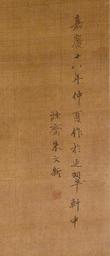 嘉慶十八年仲夏作於延翠軒中
朱文新